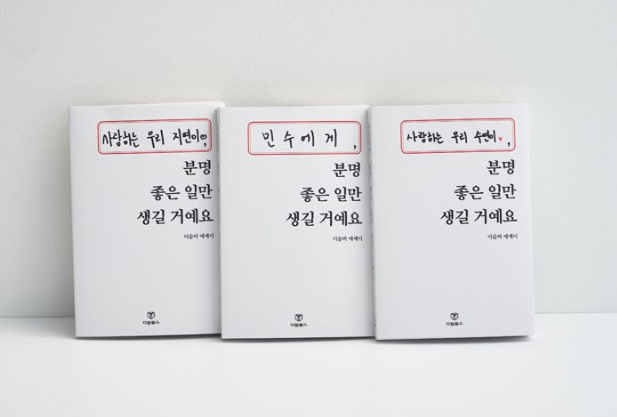 사랑하는 우리 지연이♡,
분명
좋은 일만
생길 거예요
이슬비 에세이
다둠북스
민수에게,
분명
좋은 일만
생길 거예요
이슬비 에세이
사랑하는 우리 수연이♥,
분명
좋은 일만
생길 거예요
이슬비 에세이